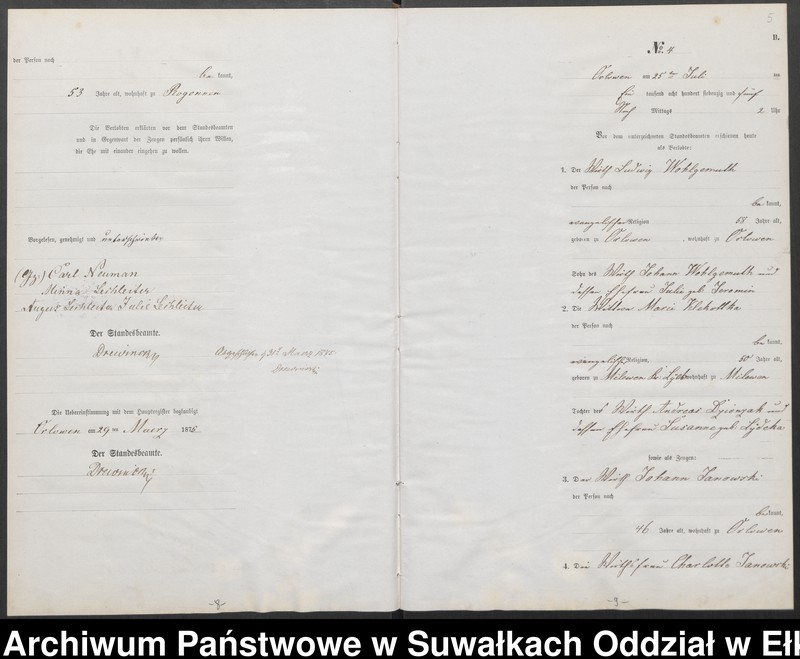 der Person nach
be kannt,
53 Jahre alt, wohnhaft zu Rogonnen
Die Verlobten erklärten vor dem Standesbeamten
und in Gegenwart der Zeugen persönlich ihren Willen,
die Ehe mit einander eingehen zu wollen.
Vorgelesen, genehmigt und unterschrieben
(Gz:) Carl Neuman
Minna Lechleiter
August Lechleiter Julie Lechleiter
Der Standesbeamte.
Drewinsky
31t März 1875
Drewinsky
Die Uebereinstimmung mit dem Hauptregister beglaubigt
Orlowen am 29ten Maerz 1875
Der Standesbeamte.
Drewinsky
-8-
5
B.
No. 4
Orlowen am 25ten Juli
Ein tausend acht hundert siebenzig und fünf
Nach Mittags 2 Uhr
Vor dem unterzeichneten Standesbeamten erschienen heute
als Verlobte:
1. Der Wirth Ludwig Wohlgemuth
der Person nach
be kannt,
evangelischer Religion 58 Jahre alt,
geboren zu Orlowen, wohnhaft zu Orlowen
Sohn des Wirth Johann Wohlgemuth und
dessen Ehefrau Julie geb. Jeromin
2. Die Wittwe Marie
der Person nach
be kannt,
evangelischer Religion, 50 Jahre alt,
geboren zu Milewen Kr. Lyck wohnhaft zu Milewen
Tochter des Wirth Andreas und
dessen Ehefrau Susanne geb.
sowie als Zeugen:
3. Der Wirth Johann Janowski
der Person nach
be kannt,
46 Jahre alt, wohnhaft zu Orlowen
4. Die Wirthsfrau Charlotte Janowski
-9-
Archiwum Państwowe w Suwałkach Oddział w Eł